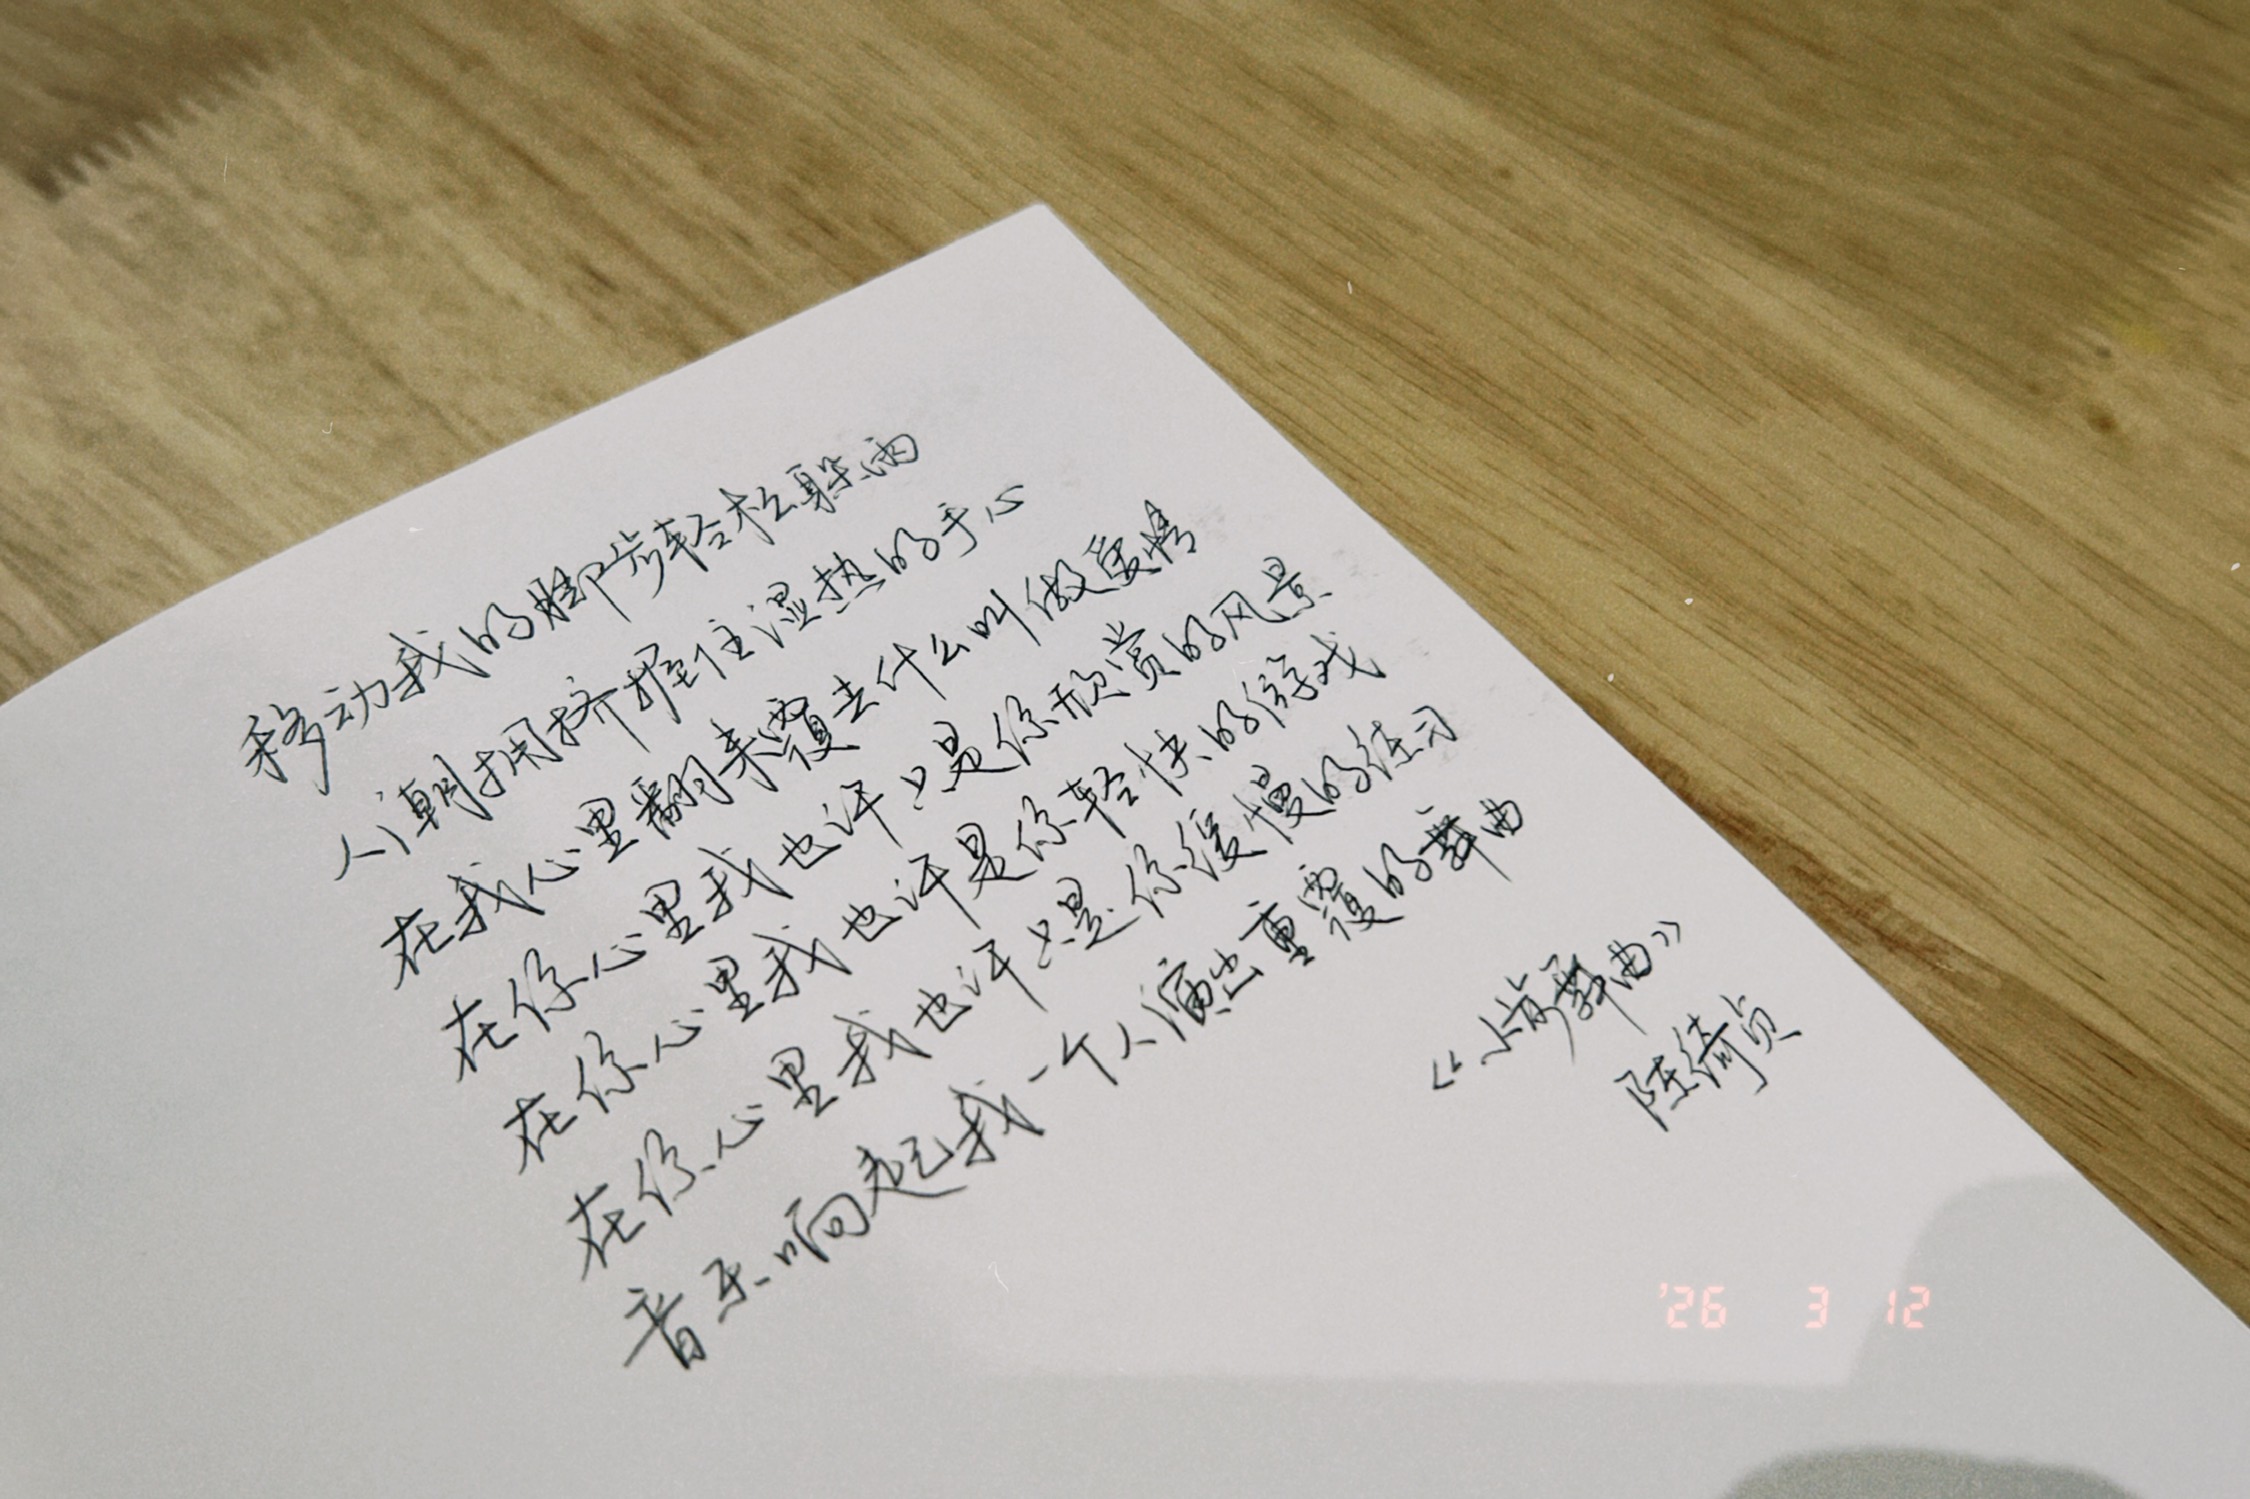 移动我的脚步轻松躲雨
人潮拥挤握住湿热的手心
在我心里翻来覆去什么叫做爱情
在你心里我也许只是你欣赏的风景
在你心里我也许是你轻快的游戏
在你心里我也许只是你缓慢的练习
音乐响起我一个人演出重覆的舞曲
《小步舞曲》
陈绮贞
'26 3 12